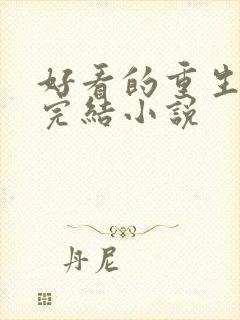 好看的重生
完結小說
丹尼